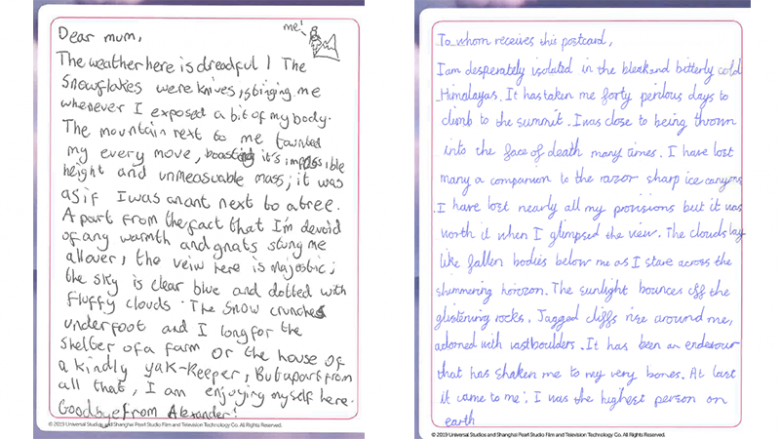 me!
Dear mum,
The weather here is dreadful! The
snowflakes were knives, stinging me
whenever I exposed a bit of my body.
The mountain next to me taunted
my every move, boasting it's impossible
height and unmeasuable mass; it was
as if I was an ant next to a tree.
Apart from the fact that I'm devoid
of any warmth and gnats stung me
all over, the veiw here is majestic;
the sky is clear blue and dotted with
fluffy clouds. The snow crunches
underfoot and I long for the
shelter of a farm or the house of
a kindly yak-keeper, But apart from
all that, I am enjoying myself here.
Goodbye from Alexander!
© 2019 Universal Studios and Shanghai Pearl Studio Film and Television Technology Co. All Rights Reserved.
To whom receives this postcard,
I am desperately isolated in the bleak and bitterly cold
Himalayas. It has taken me forty perilous days to
climb to the summit. I was close to being thrown
into the face of death many times. I have lost
many a companion to the razor sharp ice canyons
. I have lost nearly all my provisions but it was
worth it when I glimpsed the view. The clouds lay
like fallen bodies below me as I stare across the
shimmering horizon. The sunlight bounces off the
glistening rocks. Jagged cliffs rise around me,
adorned with vast boulders. It has been an endeavour
that has shaken me to my very bones. At last
it came to me: I was the highest person on
earth
© 2019 Universal Studios and Shanghai Pearl Studio Film and Television Technology Co. All Rights Reserved.